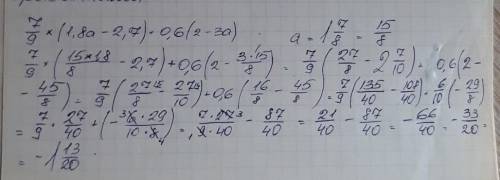 7/9 × (1,8a - 2,7) + 0,6 (2 - 3a) a = 1 7/8 = 15/8
7/9 × (15×1,8/8 - 2,7) + 0,6 (2 - 3·15/8) = 7/9 (27/8 - 2 7/10) + 0,6 (2 -
- 45/8) = 7/9 (27/8 - 27/10) + 0,6 (16/8 - 45/8) = 7/9 (135/40 - 108/40) + 6/10 (-29/8)
= 7/9 · 27/40 + (- 3 · 29/10 · 8 4) = 7 · 27 3/9 · 40 - 87/40 = 21/40 - 87/40 = - 66/40 = - 33/20 =
= - 1 13/20